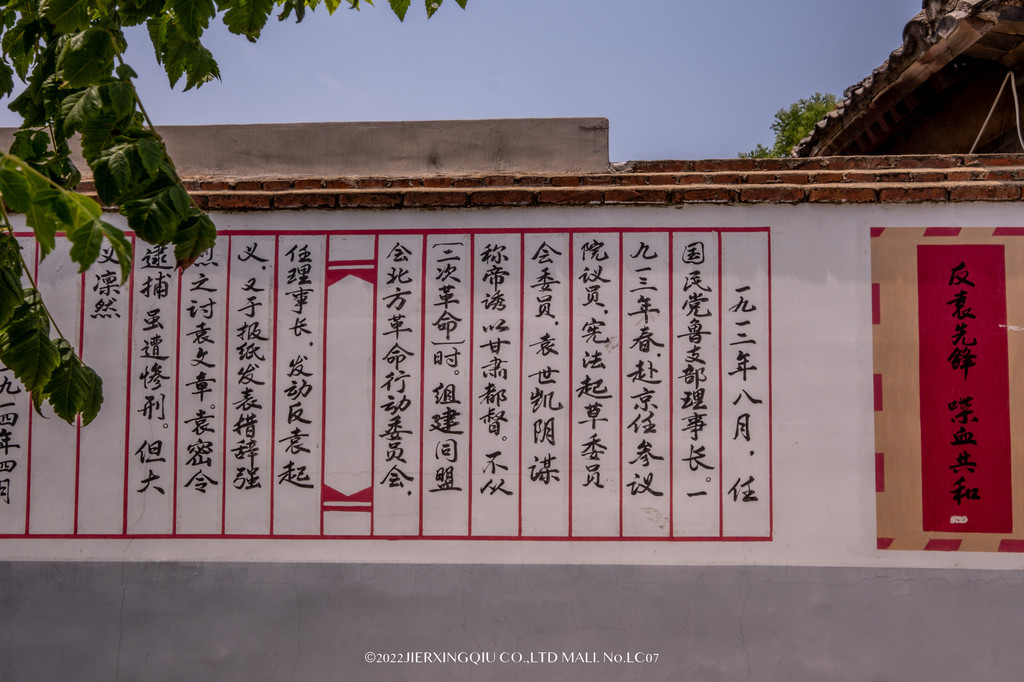 反袁先锋 喋血共和
一九一二年八月，任
国民党鲁支部理事长。一
九一三年春，赴京任参议
院议员，宪法起草委员
会委员，袁世凯阴谋
称帝诱以甘肃都督。不从
〔二次革命〕时。组建同盟
会北方革命行动委员会，
任理事长，发动反袁起
义，又于报纸发表措辞强
烈之讨袁文章。袁密令
逮捕虽遭惨刑。但大
义凛然
一九一四年四月
©2022JIERXINGQIU CO.,LTD MALL No.LC07